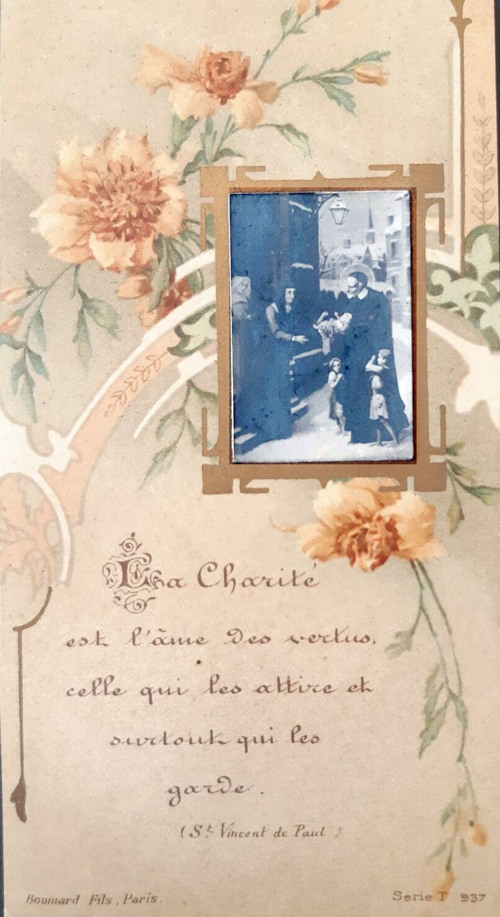 La Charité
est l'âme des vertus,
celle qui les attire et
surtout qui les
garde.
(St Vincent de Paul)
Boumard Fils, Paris.
Serie T 937